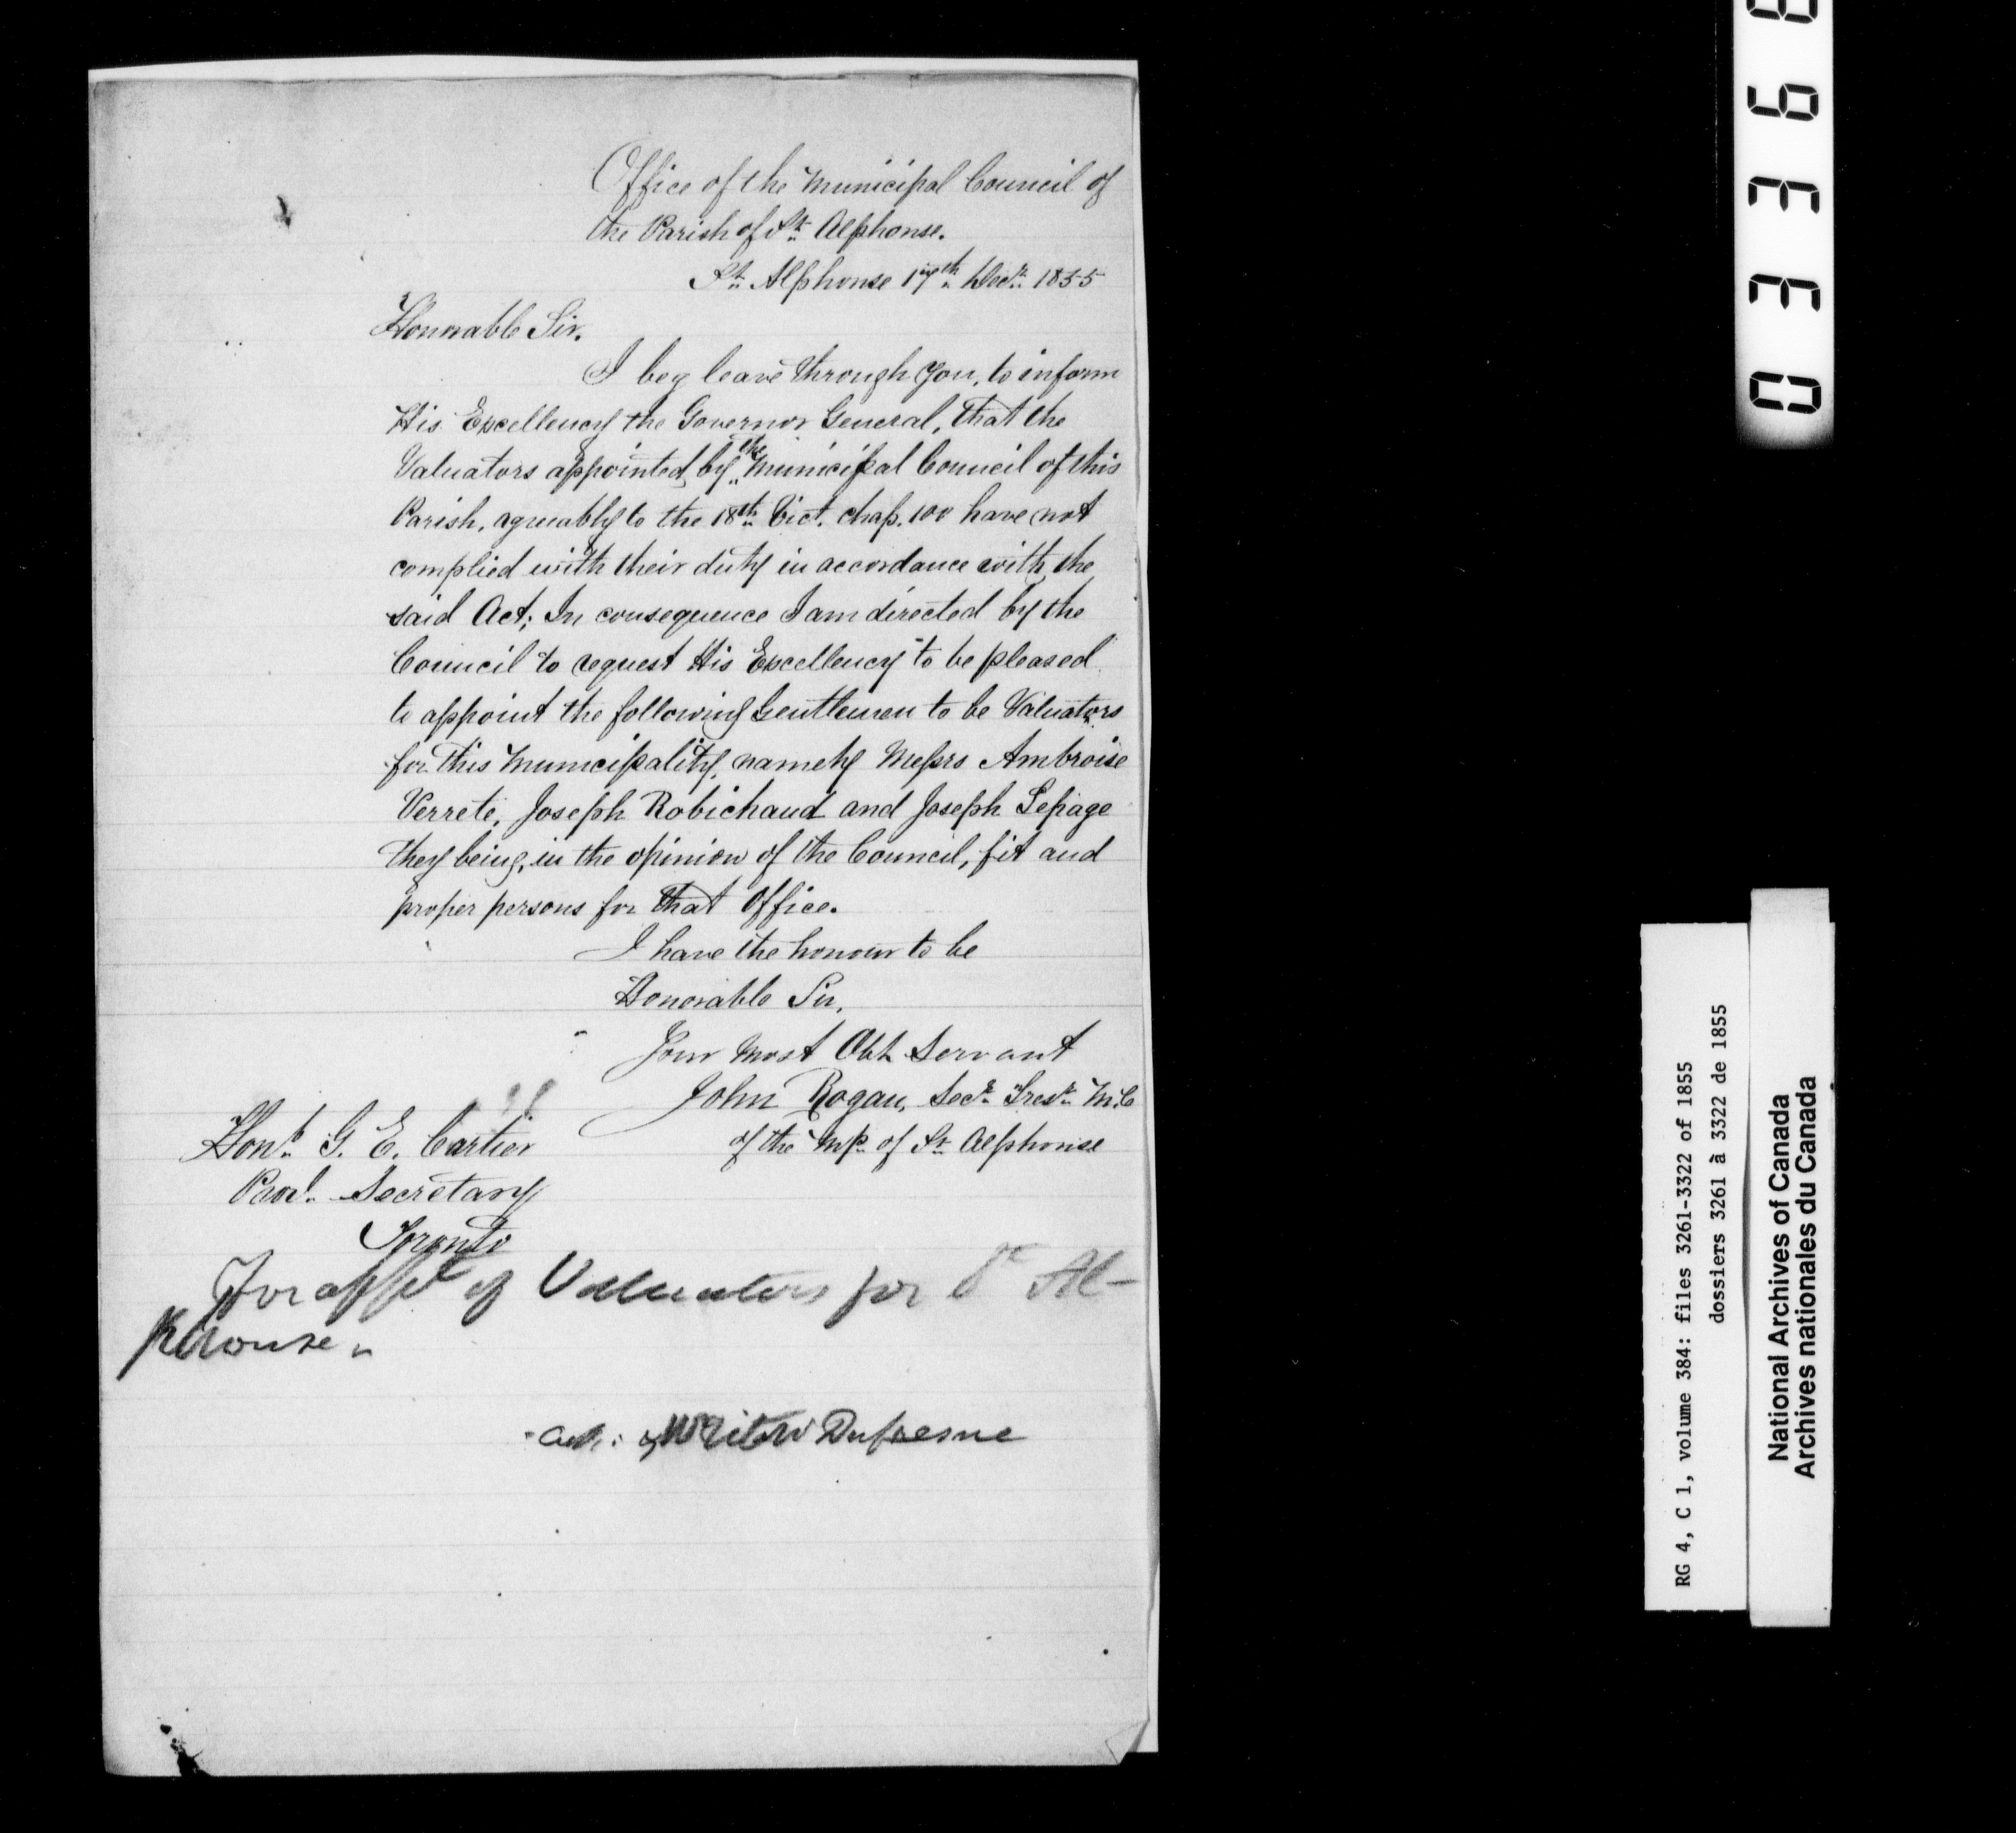 Office of the Municipal Council of
the Parish of St. Alphonse.
St. Alphonse 17th Decr. 1855
Honorable Sir.
I beg leave through you, to inform
His Excellency the Governor General, that the
Valuators appointed by the Municipal Council of this
Parish, agreably to the 18th Vict. chap. 100 have not
complied with their duty in accordance with the
said Act; In consequence I am directed by the
Council to request His Excellency to be pleased
to appoint the following Gentlemen to be Valuators
for this Municipality, namely Messrs Ambroise
Verrete, Joseph Robichaud and Joseph Lepage
they being, in the opinion of the Council, fit and
proper persons for that Office.
I have the honour to be
Honorable Sir,
Your Most Obt. Servant
John Rogan, Secr. Tresr. M.C
of the Mp. of St. Alphonse
Honb. G. E. Cartier
Provl. Secretary
Toronto
For appt of Valuators for St Al-
phonse
Dufresne
0336
RG 4, C 1, volume 384: files 3261-3322 of 1855
dossiers 3261 à 3322 de 1855
National Archives of Canada
Archives nationales du Canada